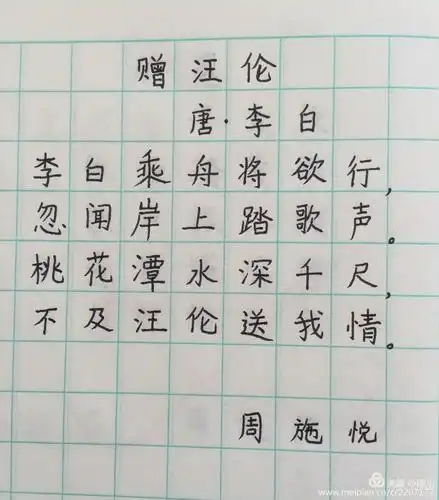 赠汪伦
唐·李白
李白乘舟将欲行,
忽闻岸上踏歌声。
桃花潭水深千尺,
不及汪伦送我情。
周施悦